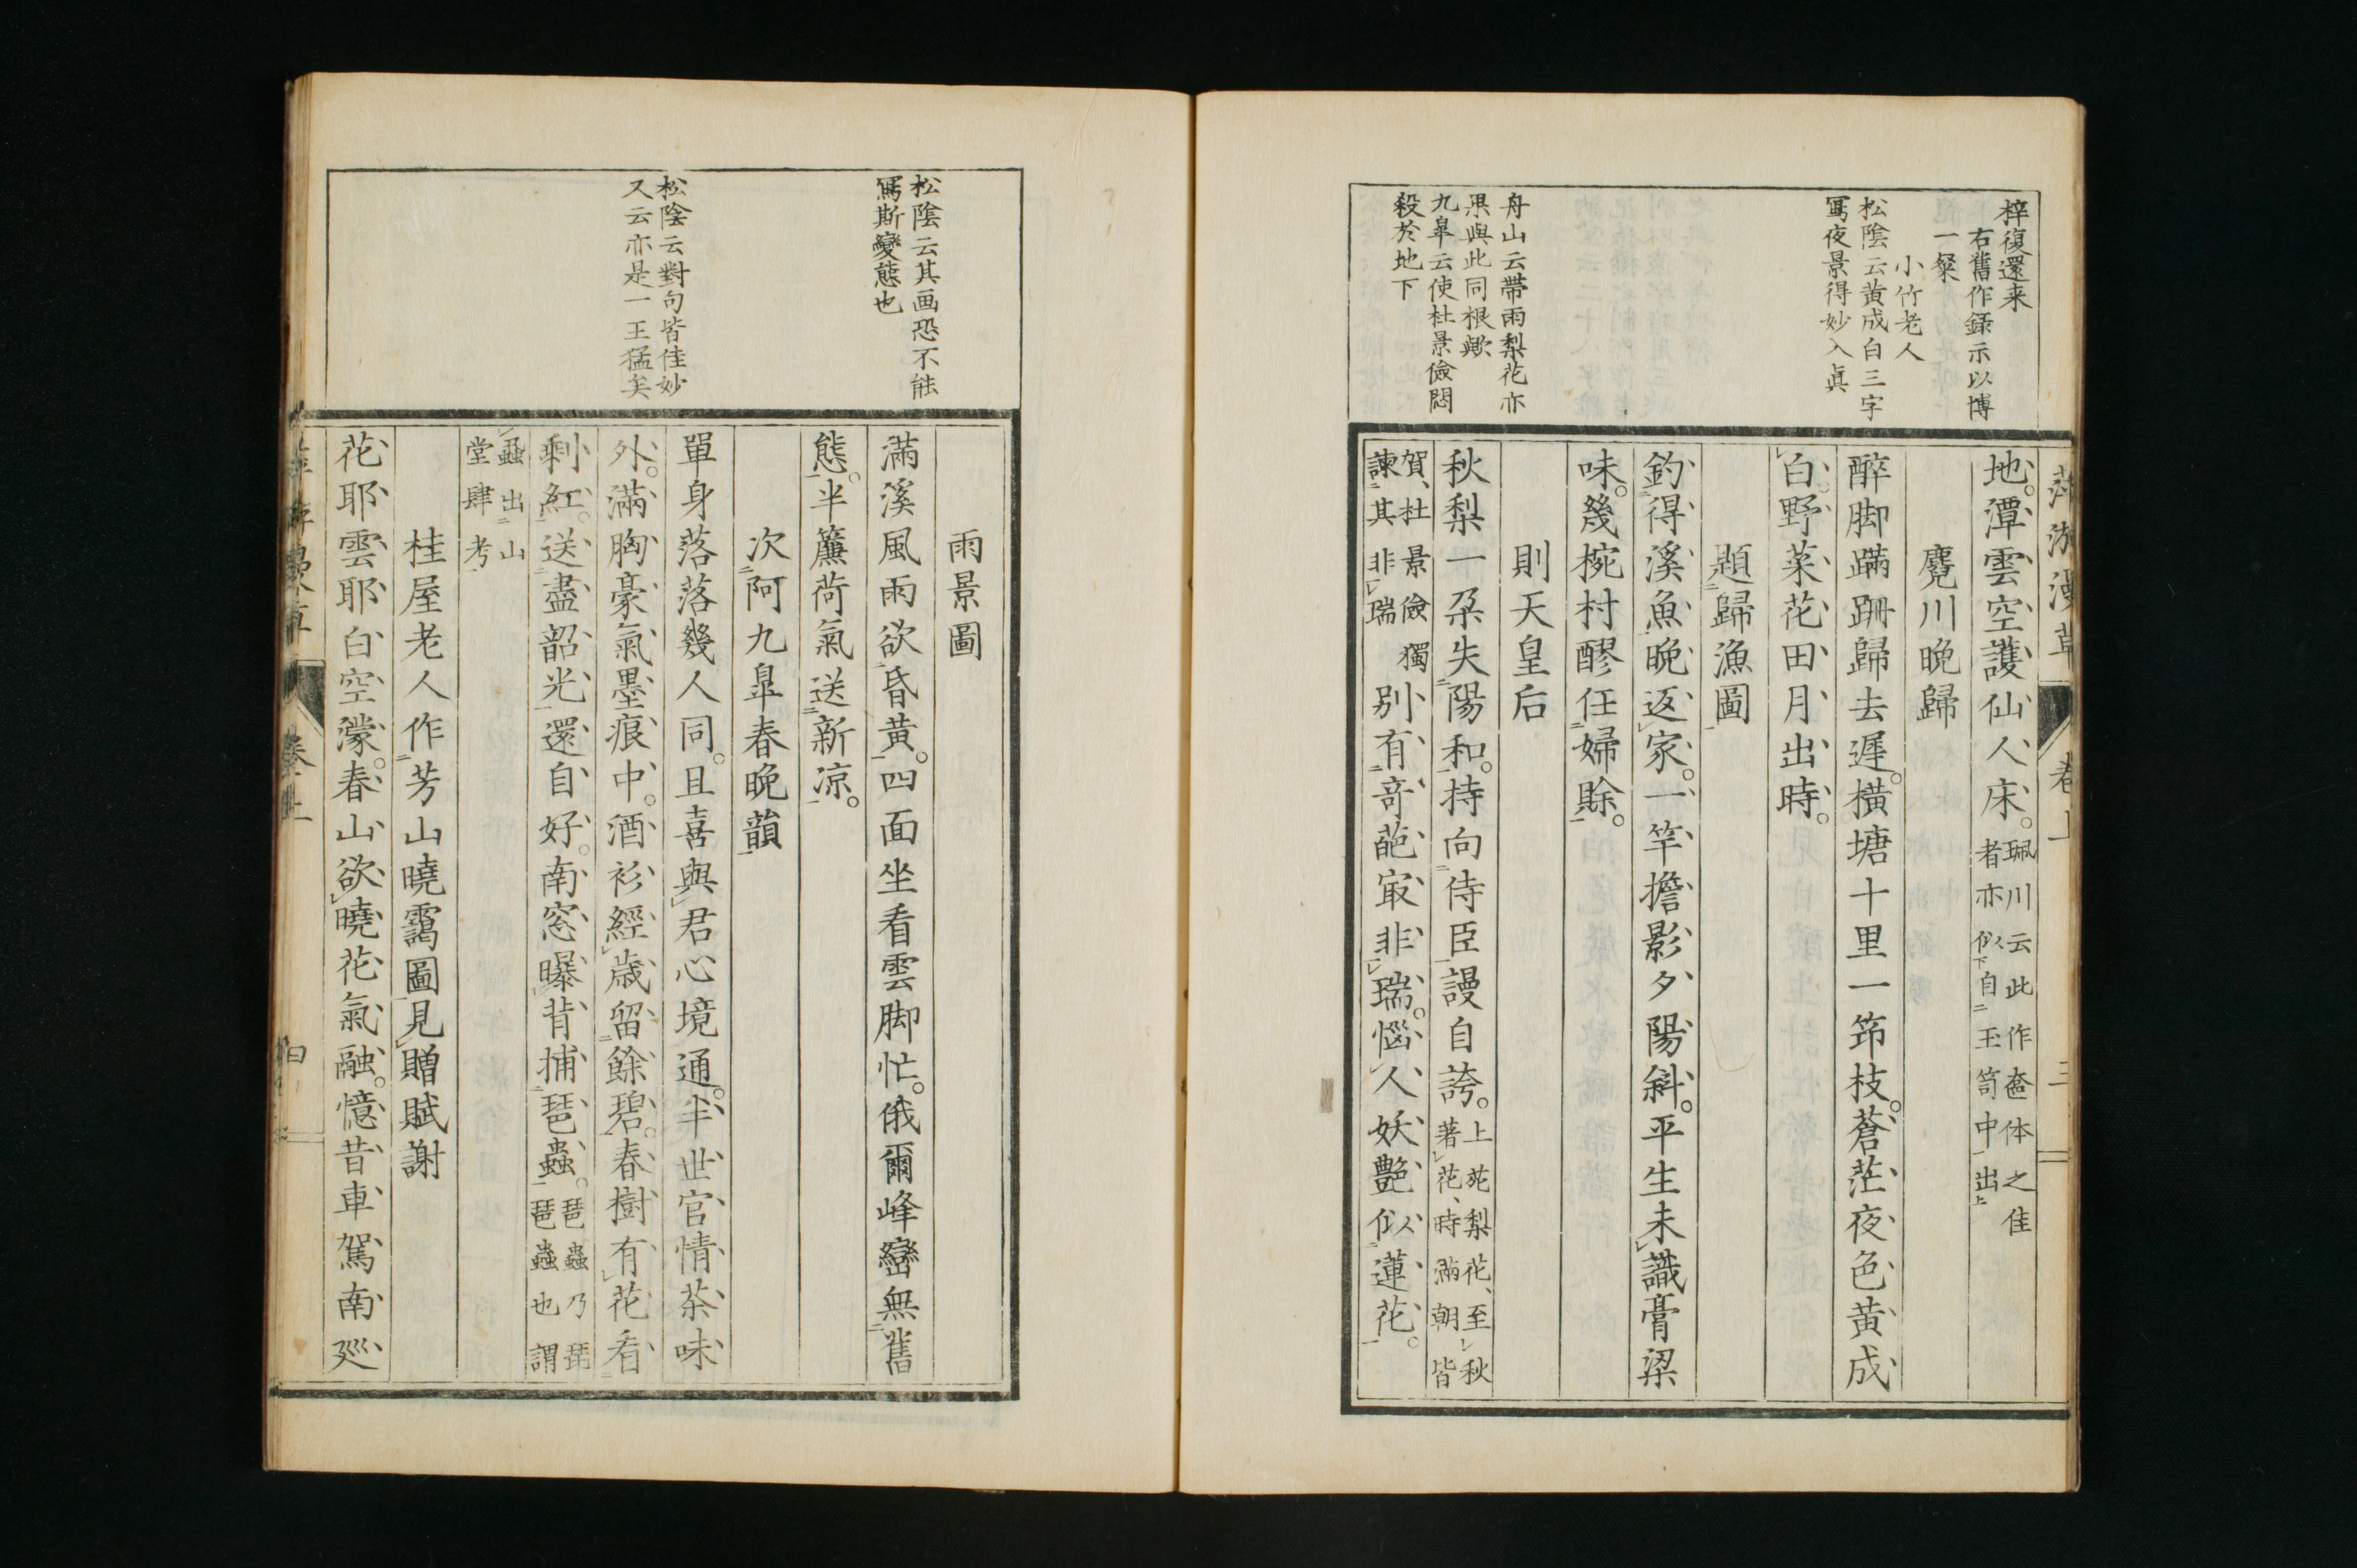 梓復還来
右舊作録示以博
一粲
小竹老人
松陰云黄成白三字
寫夜景得妙入眞
舟山云帶雨梨花亦
果與此同根歟
九皐云使杜景儉悶
殺於地下
地潭雲空護仙人床。珮川云此作奩体之佳
者亦似下自二玉笥中一出上
麑川晩歸
醉脚蹣跚歸去遲。橫塘十里一笻枝。蒼茫夜色黄成
白。野菜花田月出時。
題二歸漁圖一
釣二得溪魚一晩返レ家。一竿擔影夕陽斜。平生未レ識膏粱
味。幾椀村醪任二婦賖一。
則天皇后
秋梨一朶失二陽和一。持向二侍臣一謾自誇。上苑梨花、至レ秋
著レ花、時滿朝皆
賀、杜景儉獨
諫二其非一レ瑞
別有二奇葩一寂非レ瑞。惱レ人妖艶似二蓮花一。
萍游漫草
卷上
三
松陰云其画恐不能
寫斯變態也
松陰云對句皆佳妙
又云亦是一王猛矣
雨景圖
滿溪風雨欲二昏黄一。四面坐看雲脚忙。俄爾峰巒無二舊
態一。半簾荷氣送二新凉一。
次二阿九皐春晩韻一
單身落落幾人同。且喜與レ君心境通。半世官情茶味
外。滿胸豪氣墨痕中。酒衫經レ歳留二餘碧一。春樹有レ花看二
剩紅一。送二盡韶光一還自好。南窓曝レ背捕二琵蟲一。琵蟲乃琵
琶蟲也謂
蝨出二山
堂肆考一
桂屋老人作二芳山曉靄圖一見レ贈賦謝
花耶雲耶白空濛。春山欲レ曉花氣融。憶昔車駕南廵
卷上
四